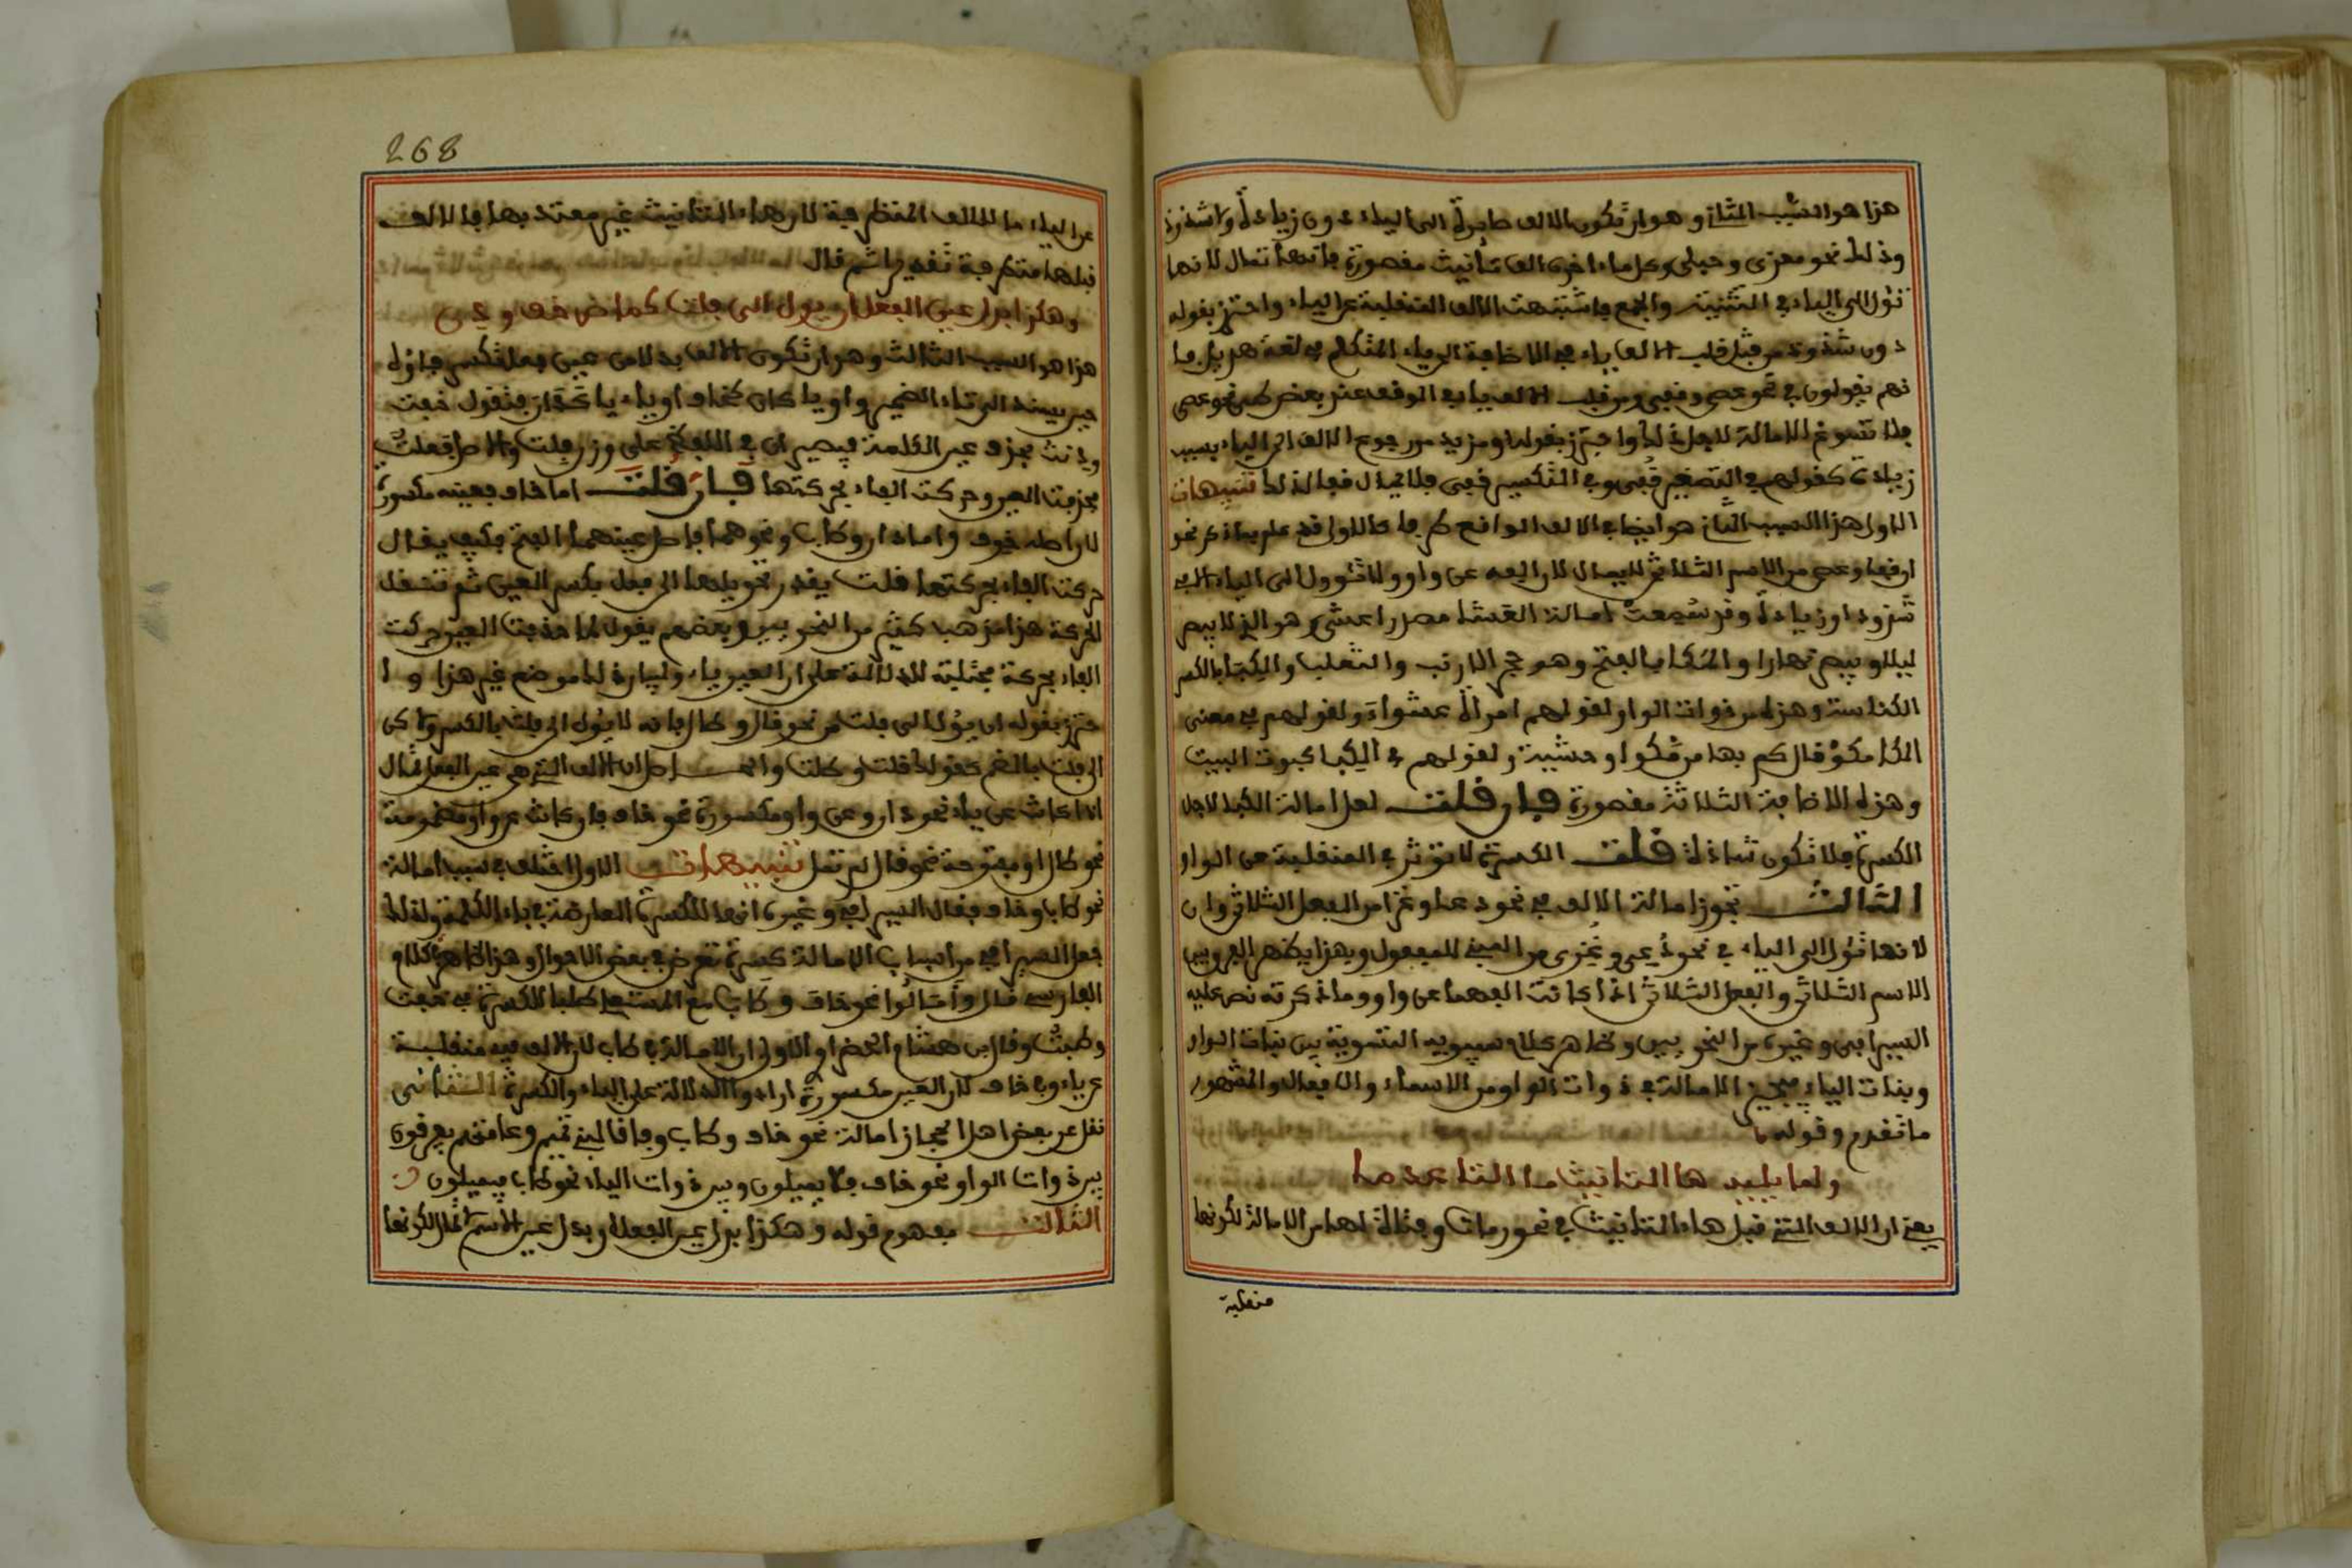 هذا هو السبب الثاني وهو ان تكون الالف صايرة الى الياء دون زيادة ولا شذوذ
وذلك نحو معزى وحبلى وكل ما اخره الف تانيث مقصورة فانها تمال لانها
تؤل الى الياء في التثنية والجمع فاشبهت الالف المنقلبة عن الياء واحترز بقوله
دون شذوذ من قلب الالف ياء في الاضافة الى ياء المتكلم في لغة هذيل فا
نهم يقولون في نحو عصى وقفى ومن قلب الالف ياء في الوقف عند بعض طيئ نحو عصى
فلا تسوغ الامالة لاجل ذلك واحترز بقوله او مزيد من رجوع الالف الى الياء بسبب
زيادة كقولهم في التصغير قفي وفي التكسير قفي فلا يمال قفا لذلك تنبيهات
الاول هذا السبب الثاني هو ايضا في الالف الواقع طرفا كالاول قد علم بما ذكر نحو
ان قفا وعصى من الاسم الثلاثي لا يمال لان الفه عن واو ولا تئوول الى الياء الا في
شذوذ او زيادة وقد سمعت امالة العشا مصدر اعشى وهو الذي لا يبصر
ليلا ويبصر نهارا والمكا بالفتح وهو جحر الارنب والثعلب والكبا بالكسر
الكناسة وهذه من ذوات الواو لقولهم امراة عشواء ولقولهم في معنى
المكا مكو قال كم بها من مكو وحشية ولقولهم في الكبا كبوت البيت
وهذه الاضافة الثلاثة مقصورة فان قلت لعل امالة الكبا لاجل
الكسرة فلا تكون شاذة قلت الكسرة لا توثر في المنقلبة عن الواو
الثالث تجوز امالة الالف في نحو دعا وغزا من الفعل الثلاثي وان
لانها تؤل الى الياء في نحو دعي وغزي من المبني للمفعول وبهذا يظهر الفرق بين
الاسم الثلاثي والفعل الثلاثي اذا كانت الفهما عن واو وما ذكرته نص عليه
السيرافي وغيره من النحويين وظاهر كلام سيبويه التسوية بين بنات الواو
وبنات الياء فيجيز الامالة في ذوات الواو من الاسماء والافعال والمشهور
ما تقدم وقوله
ولما يليه ها التانيث ما الها عدما
يعني ان الالف التي قبل هاء التانيث في نحو رمات وفتاة لها من الامالة لكونها
منقلبة
268
عن الياء ما للالف المتطرفة لان هاء التانيث غير معتد بها فالالف
قبلها متطرفة تقديرا ثم قال
وهكذا بدل عين الفعل ان يول الى فلت كماضي خف ودن
هذا هو السبب الثالث وهو ان تكون الالف بدلا من عين فعل تكسر فاؤه
حين يسند الى تاء الضمير واويا كان كخاف او يائيا كدان فتقول خفت
ودنت بحذف عين الكلمة فيصيران في اللفظ على وزن فلت والاصل فعلت
فحذفت العين وحركت الفاء بحركتها فان قلت اما خاف فعينه مكسورة
لان اصله خوف واما دان وطاب ونحوهما فاصل عينهما الفتح فكيف يقال
حركت الفاء بحركتها قلت يقدر تحويلها الى فعل بكسر العين ثم تنتقل
الحركة هذا مذهب كثير من النحويين وبعضهم يقول لما حذفت العين حركت
الفاء بحركة مجتلبة للدلالة على ان العين ياء ولبيان ذلك موضع غير هذا وا
حترز بقوله ان يؤل الى فلت من نحو قال وطال فانه لا يؤل الى فلت بالكسر ولاكن
الى فلت بالضم كقولك قلت وطلت والحاصل ان الالف التي هي عين الفعل تمال
اذا كانت عن ياء نحو دان وعن واو مكسورة نحو خاف فان كانت عن واو مضمومة
نحو طال او مفتوحة نحو قال لم تمل تنبيهات الاول اختلف في سبب امالة
نحو طاب وخاف فقال السيرافي وغيره انها للكسرة العارضة في فاء الكلمة ولذلك
جعل السيرافي من اسباب الامالة كسرة تعرض في بعض الاحوال وهذا ظاهر كلام
الفارسي قال وامالوا نحو خاف وطاب مع المستعلي طلبا للكسرة في خفت
وطبت وقال ابن هشام الخضراوي الاولى ان الامالة في طاب لان الالف فيه منقلبة
عن ياء وفي خاف لان العين مكسورة ارادوا الدلالة على الياء والكسرة الثاني
نقل عن بعض اهل الحجاز امالة نحو خاف وطاب وفاقا لبني تميم وعامتهم يفرقون
بين ذوات الواو نحو خاف فلا يميلون وبين ذوات الياء نحو طاب فيميلون
الثالث مفهوم قوله وهكذا بدل عين الفعل ان بدل عين الاسم لا تمال لكونها